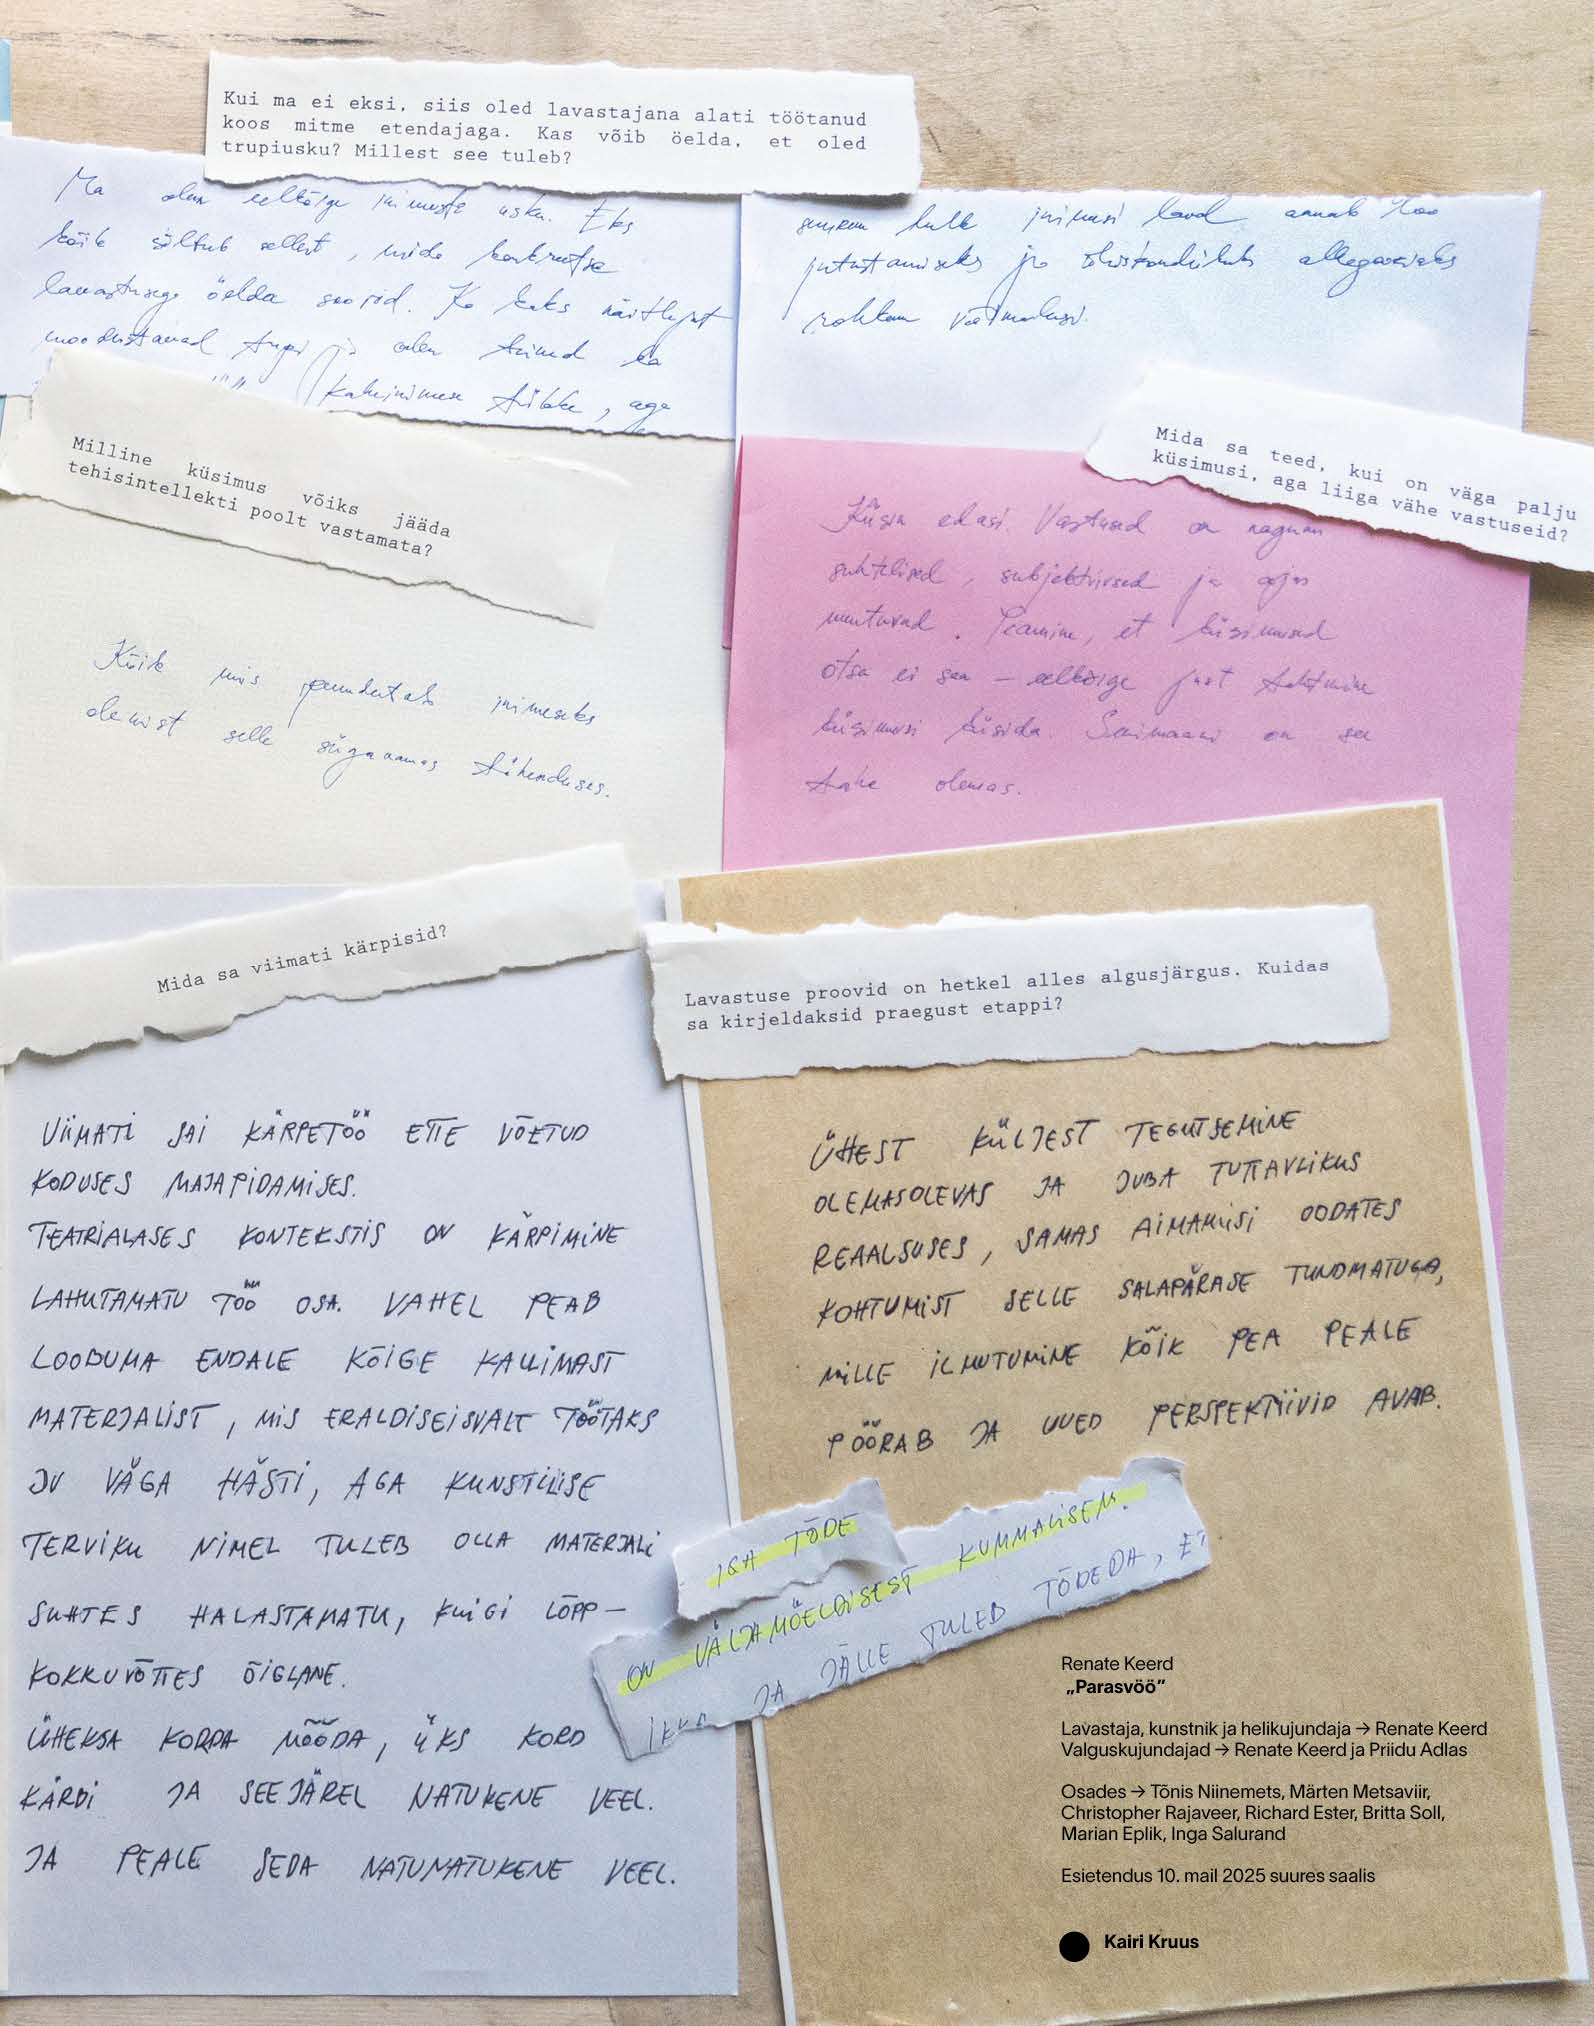 Kui ma ei eksi, siis oled lavastajana alati töötanud
koos mitme etendajaga. Kas võib öelda, et oled
trupiusku? Millest see tuleb?
Ma olen eelkõige inimuste usku. Eks
kõik sõltub sellest, mida konkreetse
lavastusega öelda soovid. Ka kaks näitlejat
moodustavad trupi ja olen teinud ka
kaheinimese tükke, aga
suurem hulk inimesi laval annab loo
jutustamiseks ja ühiskondlikuks allegooriaks
rohkem võimalusi.
Milline küsimus võiks jääda
tehisintellekti poolt vastamata?
Kõik mis puudutab inimeseks
olemist selle sügavamas tähenduses.
Mida sa teed, kui on väga palju
küsimusi, aga liiga vähe vastuseid?
Küsin edasi. Vastused on nagunii
suhtelised, subjektiivsed ja ajas
muutuvad. Peamine, et küsimused
otsa ei saa – eelkõige just tahtmine
küsimusi küsida. Senimaani on see
tahe olemas.
Mida sa viimati kärpisid?
VIIMATI SAI KÄRPETÖÖ ETTE VÕETUD
KODUSES MAJAPIDAMISES.
TEATRIALASES KONTEKSTIS ON KÄRPIMINE
LAHUTAMATU TÖÖ OSA. VAHEL PEAB
LOOBUMA ENDALE KÕIGE KALLIMAST
MATERJALIST, MIS ERALDISEISVALT TÖÖTAKS
JU VÄGA HÄSTI, AGA KUNSTILISE
TERVIKU NIMEL TULEB OLLA MATERJALI
SUHTES HALASTAMATU, KUIGI LÕPP–
KOKKUVÕTTES ÕIGLANE.
ÜHEKSA KORDA MÕÕDA, ÜKS KORD
KÄRBI JA SEEJÄREL NATUKENE VEEL.
JA PEALE SEDA NATUNATUKENE VEEL.
Lavastuse proovid on hetkel alles algusjärgus. Kuidas
sa kirjeldaksid praegust etappi?
ÜHEST KÜLJEST TEGUTSEMINE
OLEMASOLEVAS JA JUBA TUTTAVLIKUS
REAALSUSES, SAMAS AIMAMISI OODATES
KOHTUMIST SELLE SALAPÄRASE TUNDMATUGA,
MILLE ILMUTUMINE KÕIK PEA PEALE
PÖÖRAB JA UUED PERSPEKTIIVID AVAB.
IGA TÕDE
ON VÄLJAMÕELDISEST KUMMALISEM.
IKKA JA JÄLLE TULEB TÕDEDA, ET
Renate Keerd
„Parasvöö”
Lavastaja, kunstnik ja helikujundaja → Renate Keerd
Valguskujundajad → Renate Keerd ja Priidu Adlas
Osades → Tõnis Niinemets, Märten Metsaviir,
Christopher Rajaveer, Richard Ester, Britta Soll,
Marian Eplik, Inga Salurand
Esietendus 10. mail 2025 suures saalis
Kairi Kruus